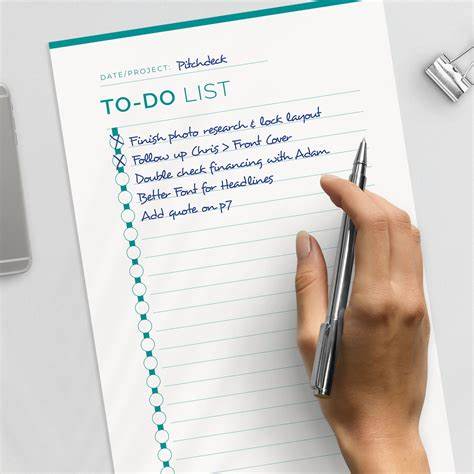 DATE/PROJECT: Pitchdeck
TO-DO LIST
Finish photo research & lock layout
Follow up Chris > Front Cover
Double check financing with Adam
Better Font for Headlines
Add quote on p7